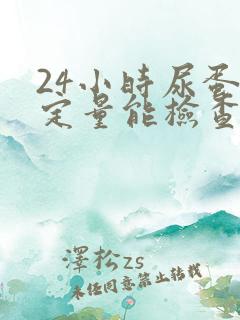 24小時尿蛋
定量能檢查
澤松zs
未经同意禁止转载